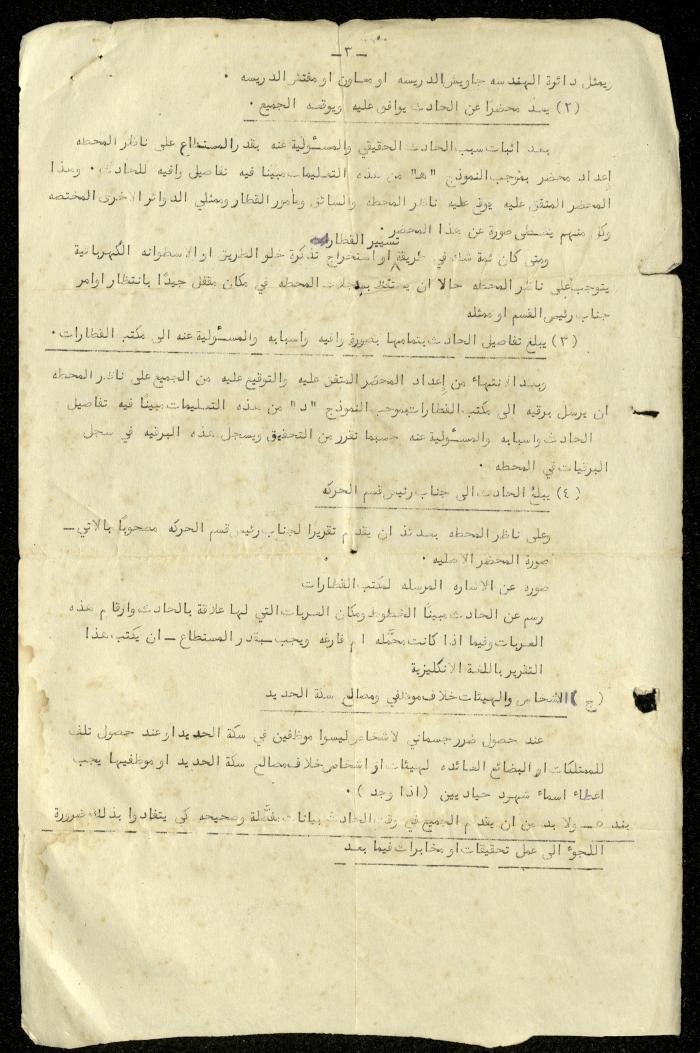 — ٣ —
يمثل دائرة الهندسه جاويش الدريسه او معاون او مفتش الدريسه ٠
(٢) يعد محضرا عن الحادث يوافق عليه ويوقعه الجميع ٠
بعد اثبات سبب الحادث الحقيقي والمسئولية عنه بقدر المستطاع على ناظر المحطه
إعداد محضر بموجب النموذج "هـ" من هذه التعليمات مبينا فيه تفاصيل وافيه للحادث ٠ وهذا
المحضر المتفق عليه يوقع عليه ناظر المحطه والسائق ومأمور القطار وممثلي الدوائر الاخرى المختصه
وكل منهم يعطى صورة عن هذا المحضر ٠
تسيير القطارات
ومتى كان ثمة شك في طريقة او استخراج تذكرة خلو الطريق او الاسطوانه الكهربائية
يتوجب على ناظر المحطه حالا ان يحتفظ بسجلات المحطه في مكان مقفل جيدًا بانتظار اوامر
جناب رئيس القسم او ممثله
(٣) يبلغ تفاصيل الحادث بتمامها بصورة وافيه واسبابه والمسئولية عنه الى مكتب القطارات ٠
وبعد الانتهاء من إعداد المحضر المتفق عليه والتوقيع عليه من الجميع على ناظر المحطه
ان يرسل برقيه الى مكتب القطارات بموجب النموذج "د" من هذه التعليمات مبينًا فيه تفاصيل
الحادث واسبابه والمسئولية عنه حسبما تقرر من التحقيق ويسجل هذه البرقيه في سجل
البرقيات في المحطه ٠
(٤) يبلغ الحادث الى جناب رئيس قسم الحركه
وعلى ناظر المحطه بعدئذ ان يقدم تقريرا لجناب رئيس قسم الحركه مصحوبًا بالاتي —
صورة المحضر الاصليه ٠
صوره عن الاشاره المرسله لمكتب القطارات
رسم عن الحادث مبينًا الخطوط ومكان العربات التي لها علاقة بالحادث وارقام هذه
العربات وفيما اذا كانت محمّله ام فارغه ويجب — بقدر المستطاع — ان يكتب هذا
التقرير باللغة الانكليزية
(ج) الاشخاص والهيئات خلاف موظفي ومصالح سكة الحديد
عند حصول ضرر جسماني لاشخاص ليسوا موظفين في سكة الحديد او عند حصول تلف
للممتلكات او البضائع العائده لهيئات او اشخاص خلاف مصالح سكة الحديد او موظفيها يجب
اعطاء اسماء شهود حياديين (اذا وجد) ٠
بند ٥ — ولا بد من ان يقدم الجميع في وقت الحادث بيانات مفصّلة وصحيحه كي يتفادوا بذلك ضرورة
اللجوء الى عمل تحقيقات او مخابرات فيما بعد